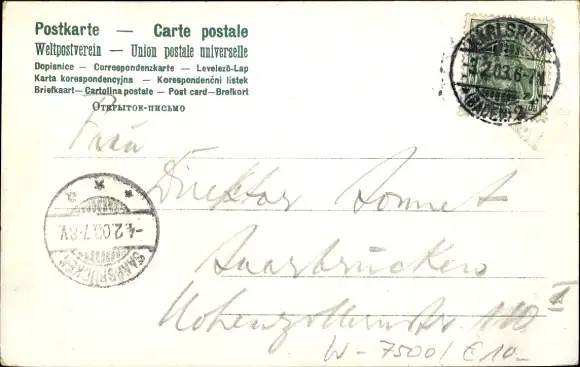 Postkarte — Carte postale
Weltpostverein — Union postale universelle
Dopisnice — Correspondenzkarte — Levelező-Lap
Karta korespondencyjna — Korespondenčni listek
Briefkaart — Cartolina postale — Post card — Brefkort
Открытое-письмо
KARLSRUHE
3.2.03.6-7
(BADEN) 2
Frau
Direktor Sonnet
SAARBRÜCKEN
-4.2.03.7-8V.
Saarbrücken
Hohenzollernstr 110
W-7500/€10.-